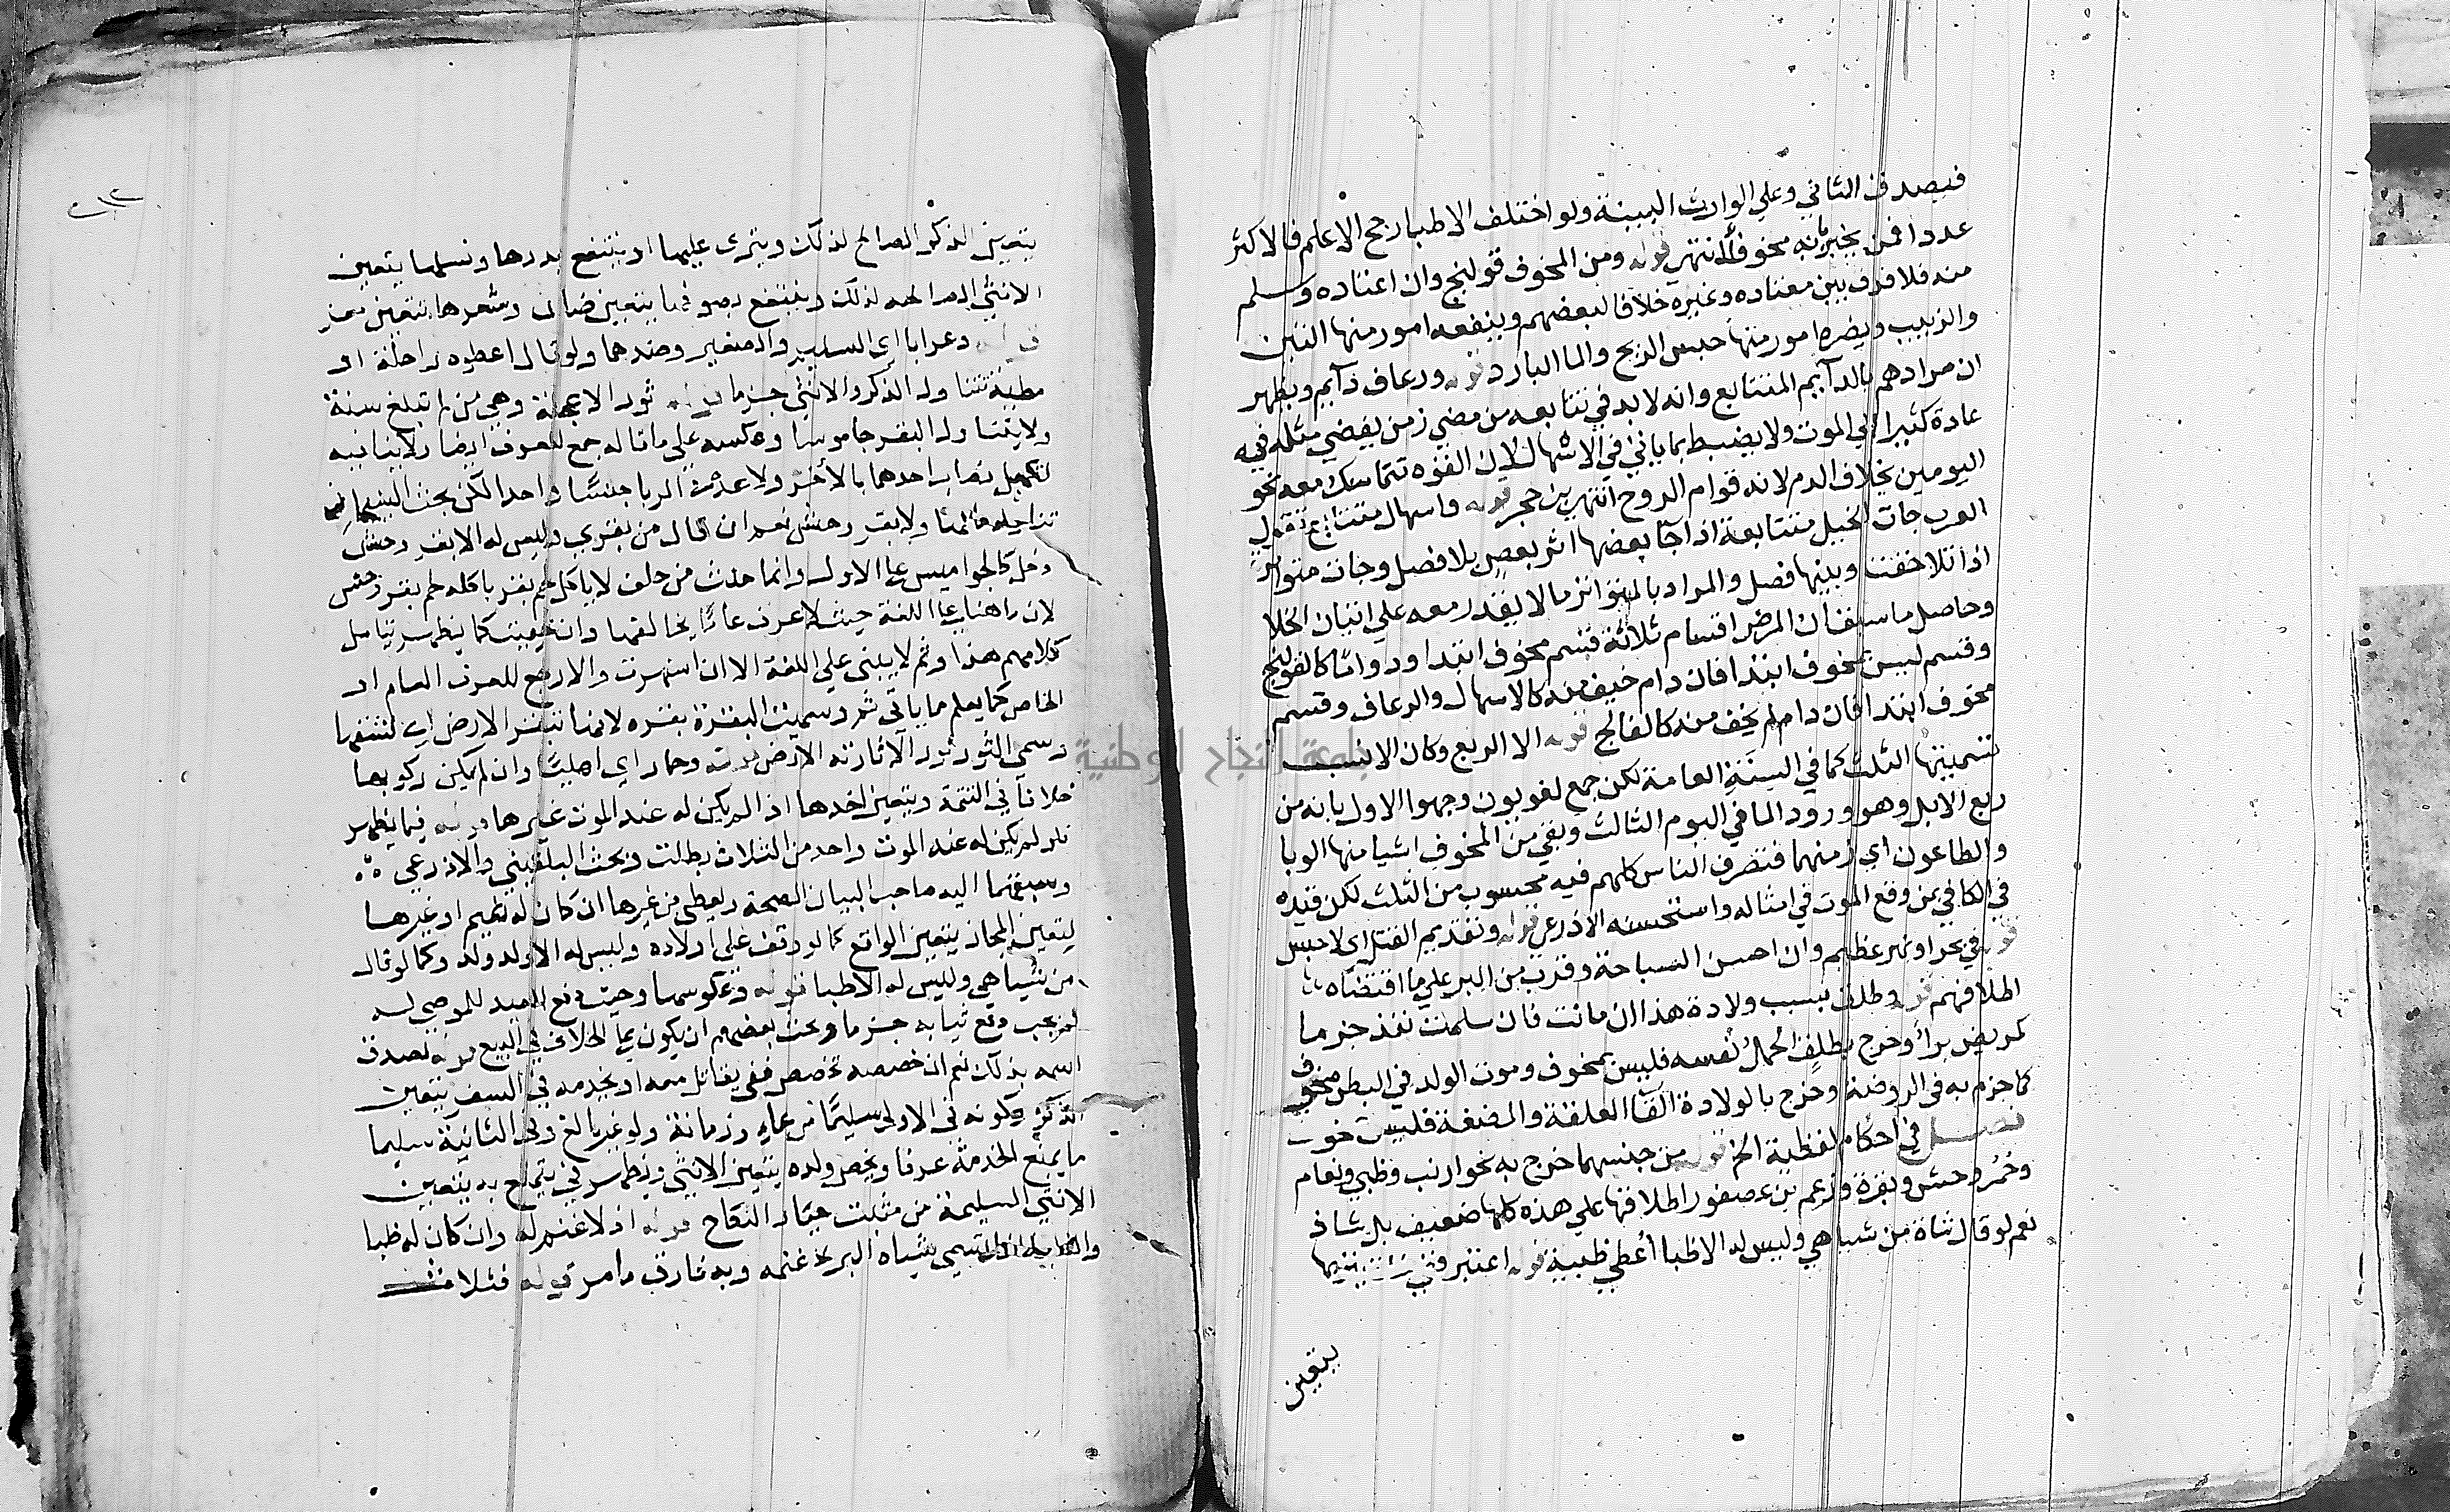 فيصدق الثاني وعلي الوارث البينة ولو اختلف الاطبا رجح الاعلم فالاكثر
عددا فمن يخبر بانه مخوف انتهي قوله ومن المخوف قولنج وان اعتاده وسلم
منه فلا فرق بين معتاده وغيره خلافا لبعضهم وينفعه امور منها التين
والزبيب ويضره امور منها حبس الريح والما البارد قوله ورعاف دآيم ويظهر
ان مرادهم بالدآيم المتتابع وانه لا بد في تتابعه من مضي زمن يفضي مثله فيه
عادة كثيرا الي الموت ولا يضبط بما ياتي في الاسهال لان القوه تتماسك معه نحو
اليومين بخلاف الدم لانه قوام الروح انتهي بن حجر قوله واسهال متتابع تقول
العرب جات الخيل متتابعة اذا جآ بعضها اثر بعض بلا فصل وجات متواترة
اذا تلاحقت وبينها فصل والمراد بالمتواتر ما لا يقدر معه علي اتيان الخلا
وحاصل ما سبق ان المرض اقسام ثلاثة قسم مخوف ابتدا ودواما كالقولنج
وقسم ليس بمخوف ابتدا فان دام خيف منه كالاسهال والرعاف وقسم
مخوف ابتدا فان دام لم يخف منه كالفالج قوله الا الربع وكان الانسب
تسميتها الثلث كما في السنة العامة لكن جمع لغويون وجهوا الاول بانه من
ربع الابل وهو ورود الما في اليوم الثالث وبقي من المخوف اشيا منها الوبا
والطاعون اي زمنهما فتصرف الناس كلهم فيه محسوب من الثلث لكن قيده
في الكافي بمن وقع الموت في امثاله واستحسنه الاذرعي قوله وتقديم القتل اي لا حبس
قوله في بحر او نهر عظيم وان احسن السباحة وقرب من البر علي ما اقتضاه
اطلاقهم قوله وطلق بسبب ولادة هذا ان ماتت فان سلمت نفذ جزما
كمريض برأ وخرج بطلق الحمل نفسه فليس بمخوف وموت الولد في البطن مخوف
كما جزم به في الروضة وخرج بالولادة القآ العلقة والمضغة فليس خوف
فصل في احكام لفظية الخ قوله من جنسهما خرج به نحو ارنب وظبي ونعام
وحمر وحش وبقرة وزعم بن عصفور اطلاقها علي هذه كلها ضعيف بل شاذ
نعم لو قال شاة من شياهي وليس له الا ظبا أعطي ظبية قوله اعتبر
يتعين
يتعين الذكر الصالح لذلك وينزى عليها او ينتفع بدرها ونسلها يتعين
الانثي الصالحه لذلك وينتفع بصوفها يتعين ضان وشعرها يتعين معز
وعرابا اي السليم والصغير وضدهما ولو قال اعطوه راحلة او
مطية تتناول الذكر والانثي جزما قوله ثور الا عجلة وهي من لم تبلغ سنة
ولا يتناول البقر جاموسا وعكسه علي ما قاله جمع للعرف ايضا ولا ينافيه
تكميل نصاب احدهما بالاخر ولا عدهم في الربا جنسا واحدا لكن بحث الشيخان
ولا بقر وحش نعم ان قال من بقري وليس له الا بقر وحش
دخل كالجواميس علي الاول وانما حنث من حلف لا ياكل لحم بقر باكله لحم بقر وحش
لان ما هنا علي اللغة حيث لا عرف عام يخالفها وان خفيت كما يظهر بتامل
كلامهم هذا وثم لا يبني علي اللغة الا ان اشتهرت والا رجع للعرف العام او
الخاص كما يعلم مما ياتي ثم وسميت البقرة بقره لانها تبقر الارض اي تشقها
وسمي الثور ثورا لاثارته الارض قوله وحمار اي اهليا وان لم يمكن ركوبهما
خلافا في التتمة ويتعين احدها اذا لم يكن له عند الموت غيرها قوله فيما يظهر
فلو لم يكن له عند الموت واحد من الثلاث بطلت وبحث البلقيني والاذرعي
وسبقهما اليه صاحب البيان الصحة ويعطي من غيرها ان كان له نعيم او غيرها
ليتعين المجاز بتعين الواقع كما لو وقف علي اولاده وليس له الا ولد ولد وكما لو قال
من شياهي وليس له الا ظبا قوله وعكوسها وحيث دفع العبد للموصي له
لم يجب دفع ثيابه جزما وبحث بعضهم ان يكون علي الخلاف في البيع قوله لصدق
اسمه بذلك نعم ان خصصه تخصص ففي يقاتل معه او يخدمه في السفر يتعين
الذكر وكونه في الاولي سليما من عمي وزمانة ولو غير بالغ وفي الثانية سليما
ما يمنع الخدمة عرفا ويحضن ولده يتعين الانثي ويظهر في يتمتع به يتعين
الانثي السليمة من مثبت خيار النكاح قوله اذ لا غنم له وان كان له ظبا
تسمي شياه البر لا غنمه وبه فارق ما مر قوله فثلاث